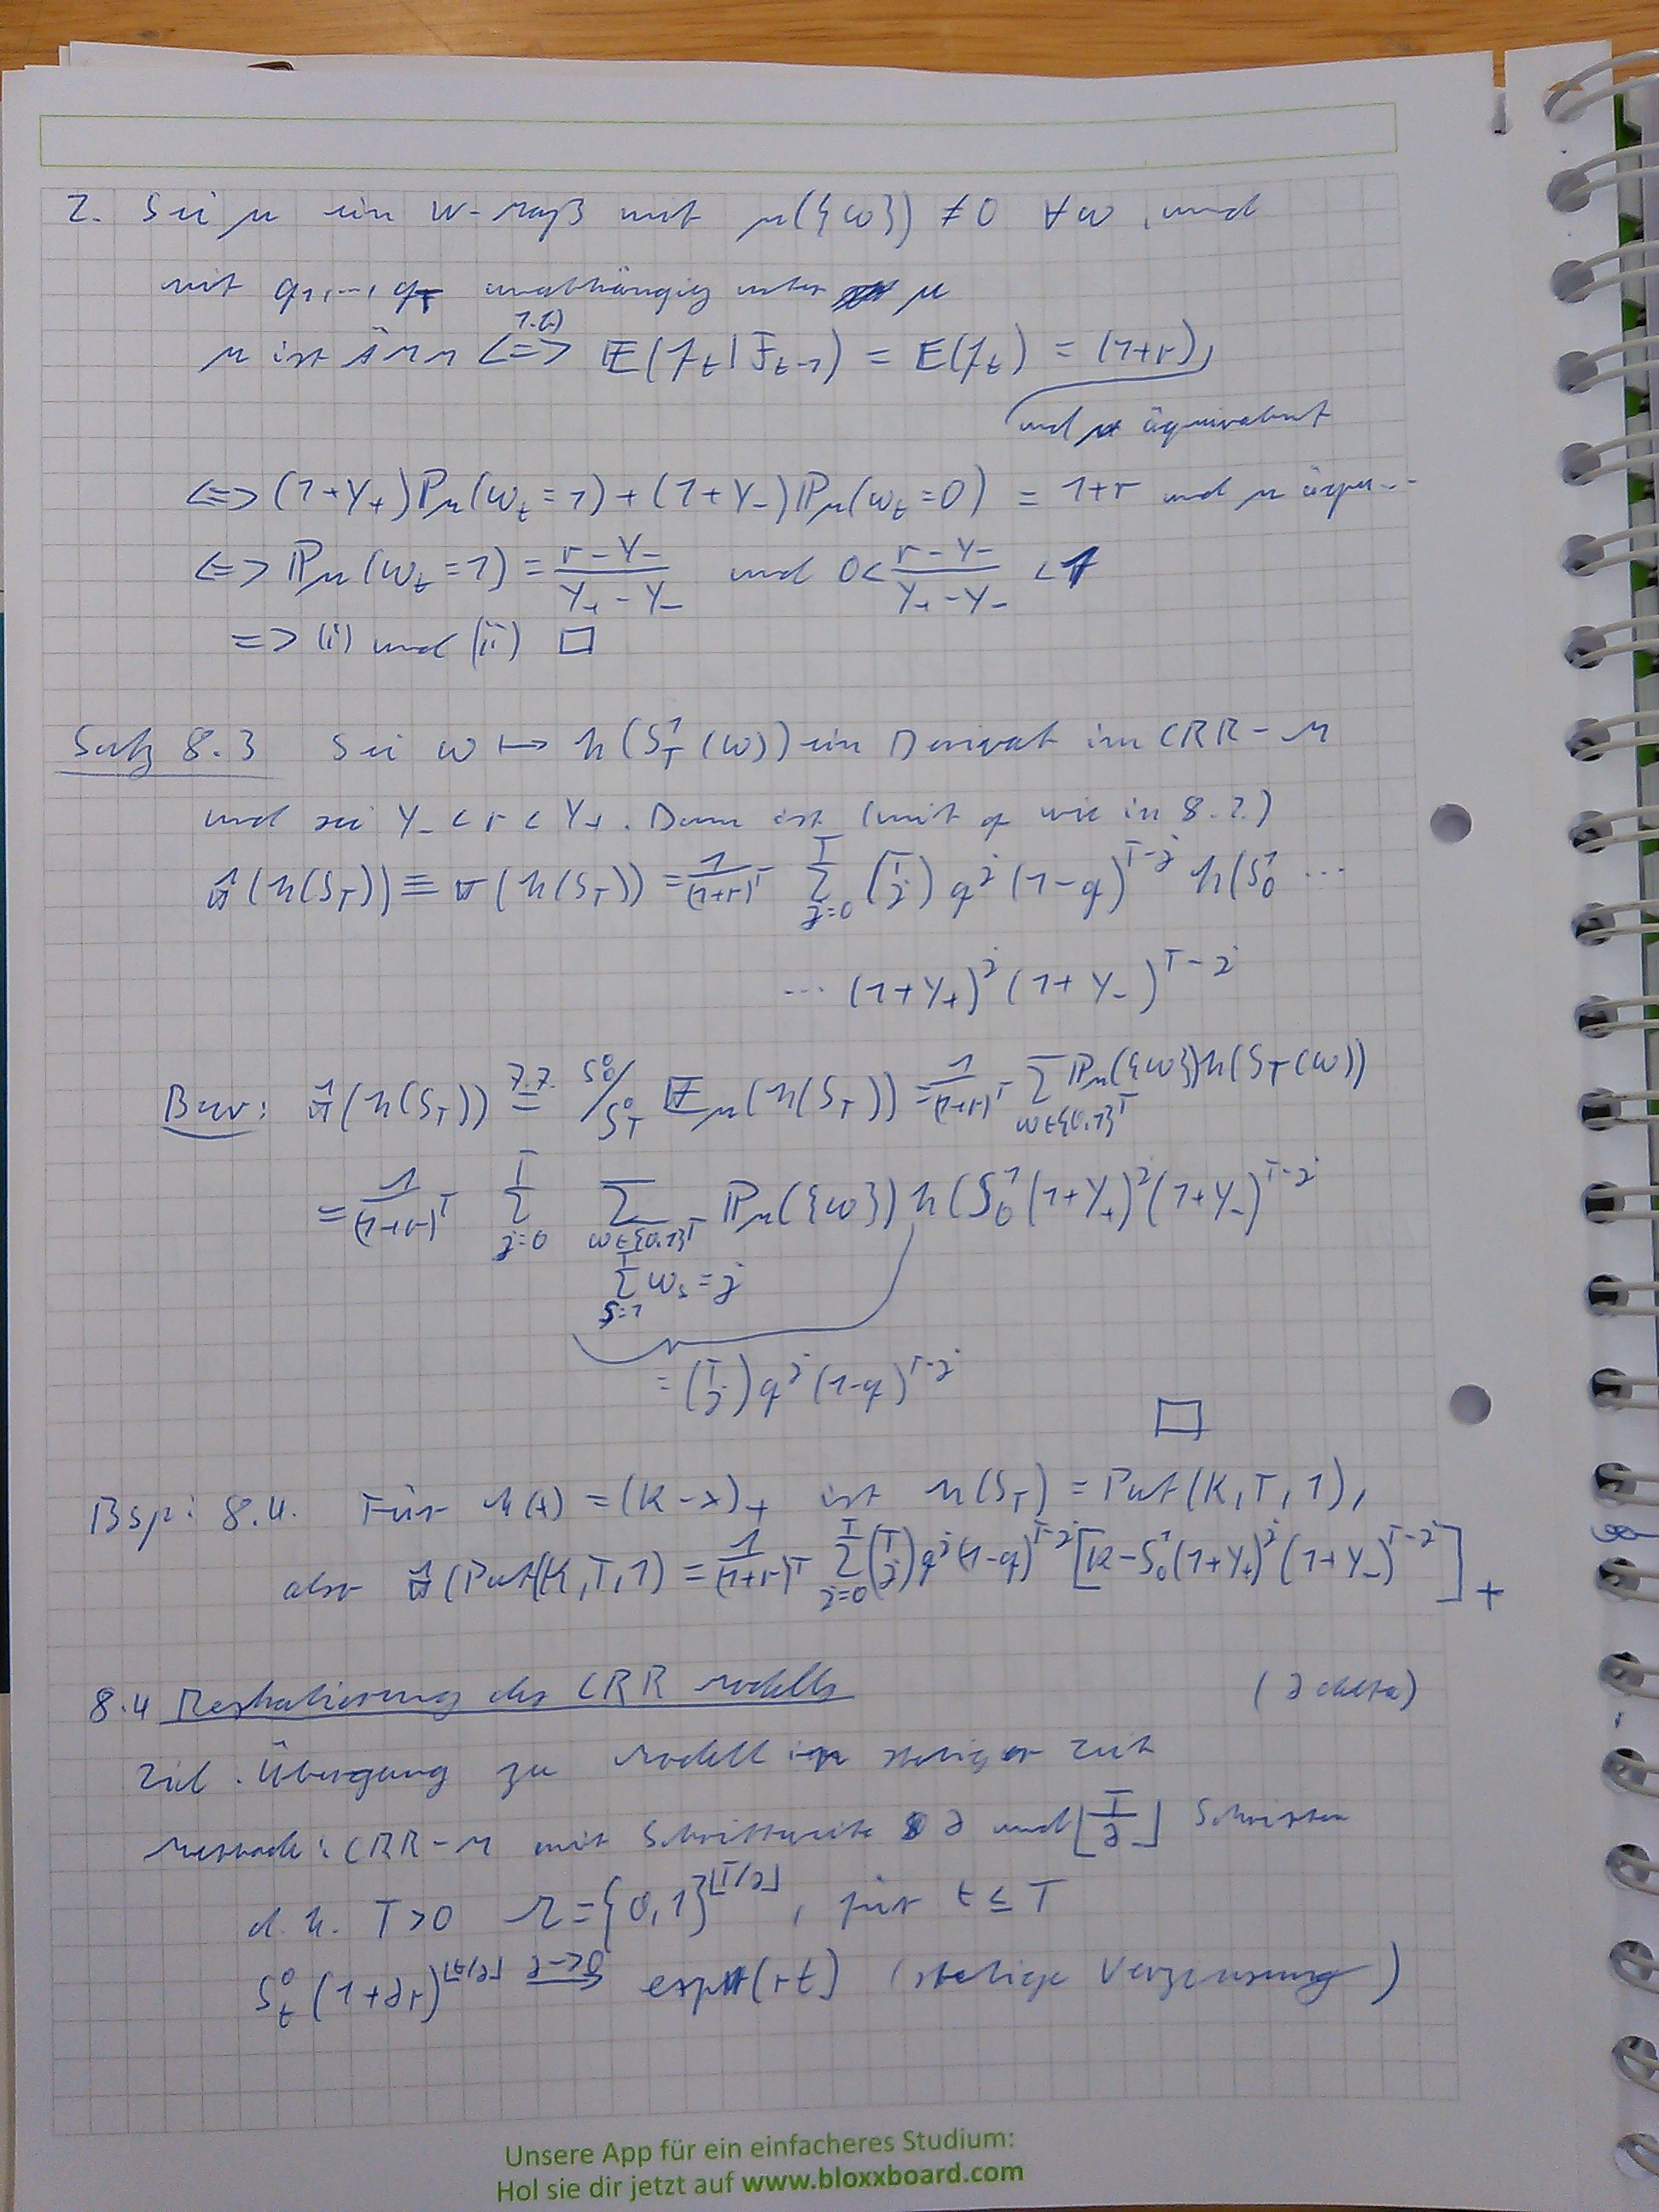 2. Sei μ ein W-Maß mit μ({ω}) ≠ 0 ∀ω, und
mit q₁, ..., q_T unabhängig unter μ
μ ist ÄMM ⟺ (1.a) 𝔼(f_t | F_{t-1}) = E(f_t) = (1+r),
und μ äquivalent
⟺ (1+Y₊) ℙ_μ(ω_t = 1) + (1+Y₋) ℙ_μ(ω_t = 0) = 1+r und μ äqu...
⟺ ℙ_μ(ω_t = 1) = (r - Y₋)/(Y₊ - Y₋) und 0 < (r - Y₋)/(Y₊ - Y₋) < 1
=> (i) und (ii) □
Satz 8.3 Sei ω ↦ h(S_T^1(ω)) ein Derivat im CRR-M
und sei Y₋ < r < Y₊. Dann ist (mit q wie in 8.2)
π̂(h(S_T)) ≡ π(h(S_T)) = 1/(1+r)^T Σ_{j=0}^T (T j) q^j (1-q)^{T-j} h(S_0^1 ...
... (1+Y₊)^j (1+Y₋)^{T-j}
Bew: π̂(h(S_T)) =^{7.7.} S_0^0/S_T^0 𝔼_μ(h(S_T)) = 1/(1+r)^T Σ_{ω∈{0,1}^T} ℙ_μ({ω}) h(S_T(ω))
= 1/(1+r)^T Σ_{j=0}^T Σ_{ω∈{0,1}^T} ℙ_μ({ω}) h(S_0^1 (1+Y₊)^j (1+Y₋)^{T-j}
Σ_{s=1}^T ω_s = j
= (T j) q^j (1-q)^{T-j}
□
Bsp: 8.4. Für h(x) = (K-x)₊ ist h(S_T) = Put(K,T,1),
also π̂(Put(K,T,1) = 1/(1+r)^T Σ_{j=0}^T (T j) q^j (1-q)^{T-j} [K - S_0^1 (1+Y₊)^j (1+Y₋)^{T-j}]₊
8.4 Reskalierung des CRR Modells (∂ delta)
Ziel. Übergang zu Modell in stetiger Zeit
Methode: CRR-M mit Schrittweite ∂ und ⌊T/∂⌋ Schritten
d.h. T>0 Ω = {0,1}^{⌊T/∂⌋}, für t ≤ T
S_t^0 (1+∂r)^{⌊t/∂⌋} →^{∂->0} exp(rt) (stetige Verzinsung)
Unsere App für ein einfacheres Studium:
Hol sie dir jetzt auf www.bloxxboard.com